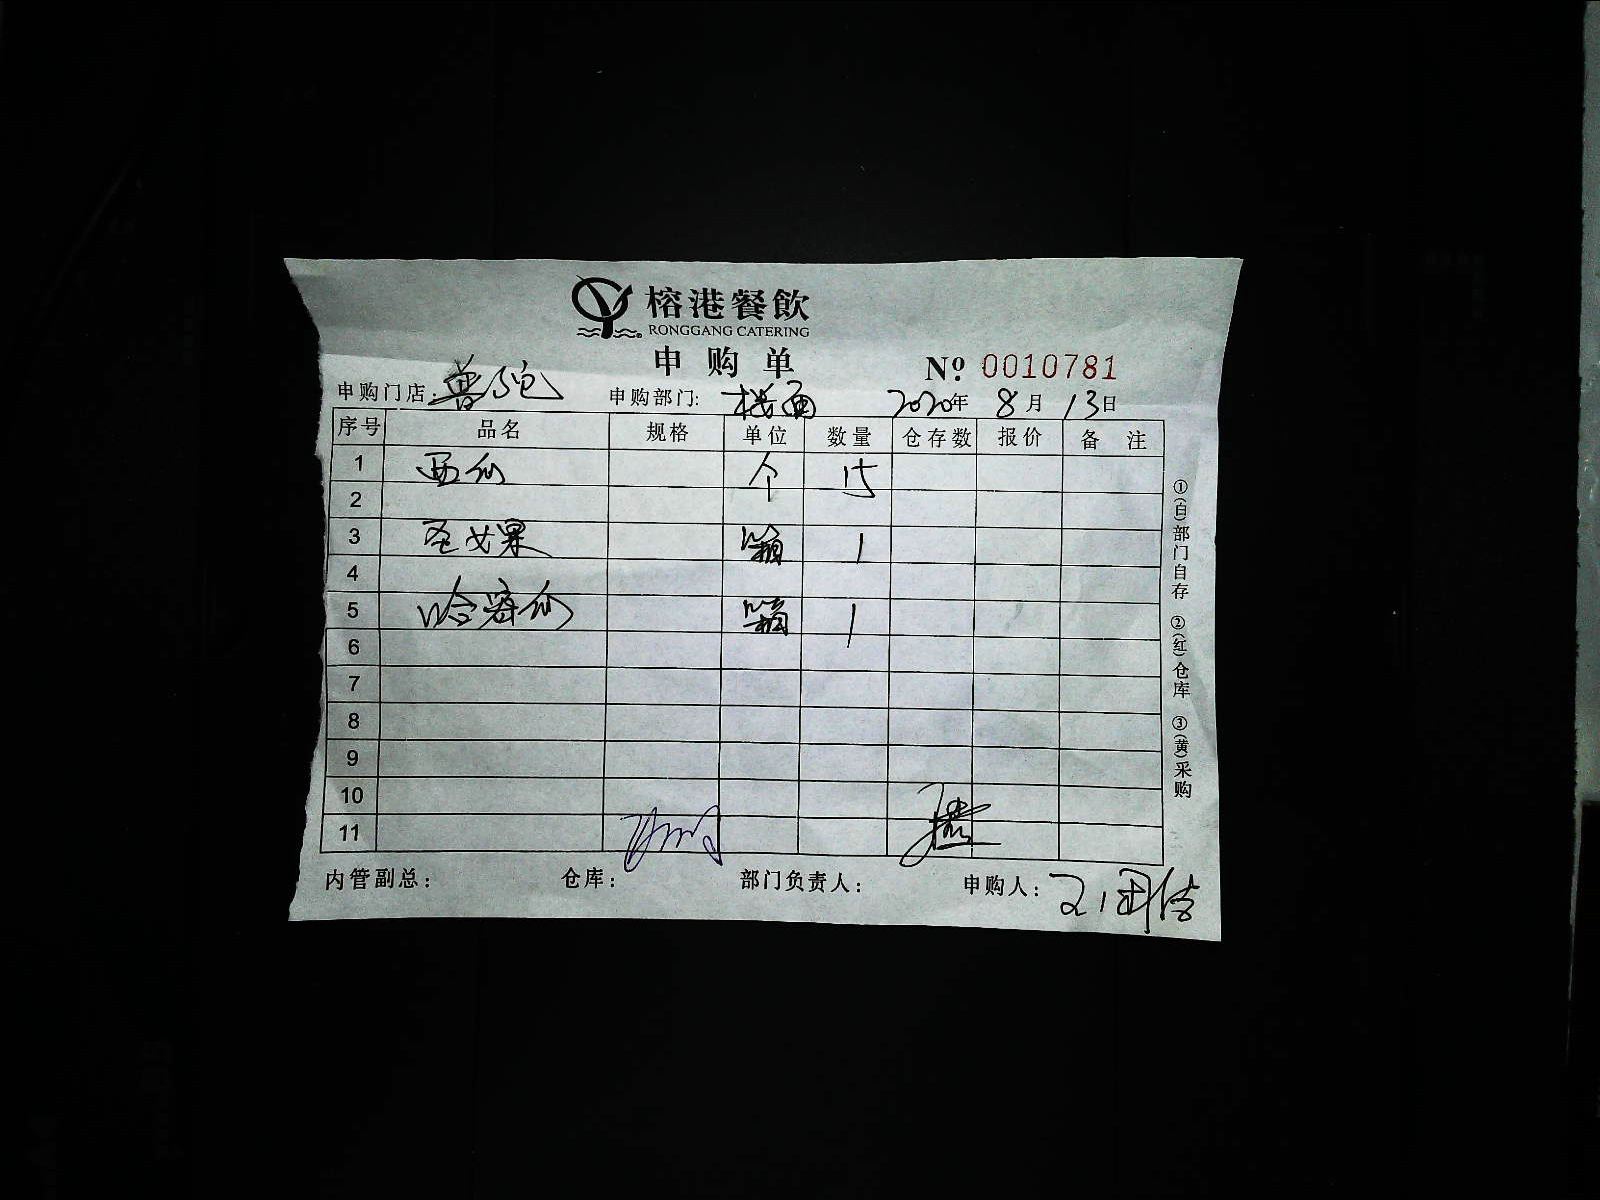 榕港餐飲
RONGGANG CATERING
申购单
Nº 0010781
申购门店: 申购部门: 楼面 2020年 8月 13日
序号 品名 规格 单位 数量 仓存数 报价 备注
1 西仙 个 15
2
3 圣女果 箱 1
4
5 哈密仙 箱 1
6
7
8
9
10
11
内管副总: 仓库: 部门负责人: 申购人:
①(白)部门自存 ②(红)仓库 ③(黄)采购